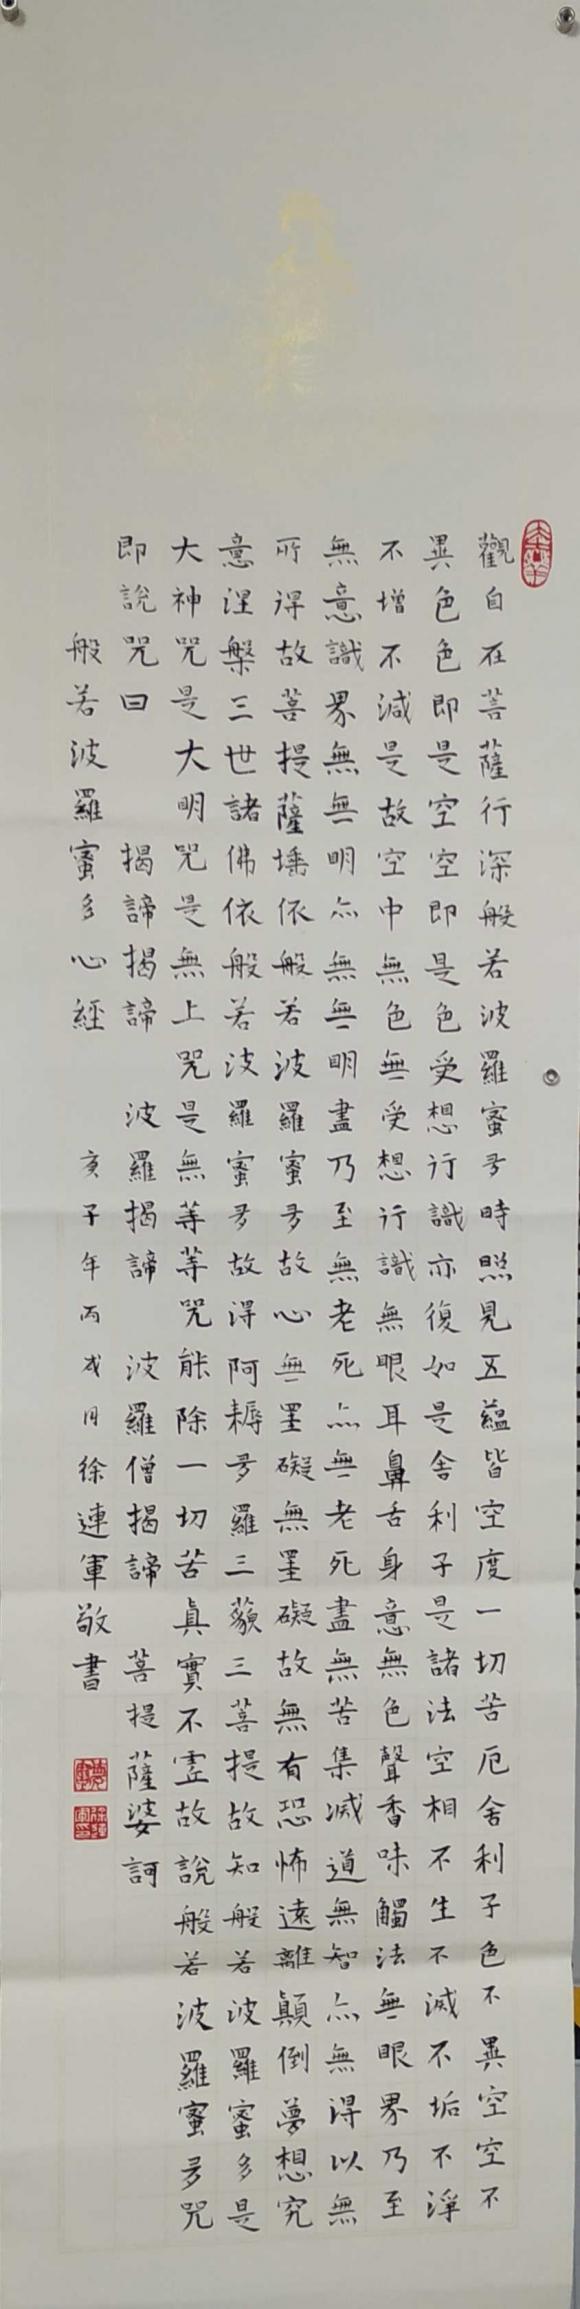 觀自在菩薩行深般若波羅蜜多時照見五蘊皆空度一切苦厄舍利子色不異空空不
異色色即是空空即是色受想行識亦復如是舍利子是諸法空相不生不滅不垢不淨
不增不減是故空中無色無受想行識無眼耳鼻舌身意無色聲香味觸法無眼界乃至
無意識界無無明亦無無明盡乃至無老死亦無老死盡無苦集滅道無智亦無得以無
所得故菩提薩埵依般若波羅蜜多故心無罣礙無罣礙故無有恐怖遠離顛倒夢想究
意涅槃三世諸佛依般若波羅蜜多故得阿耨多羅三藐三菩提故知般若波羅蜜多是
大神咒是大明咒是無上咒是無等等咒能除一切苦真實不虛故說般若波羅蜜多咒
即說咒曰 揭諦揭諦 波羅揭諦 波羅僧揭諦 菩提薩婆訶
般若波羅蜜多心經 庚子年丙戌月徐連軍敬書